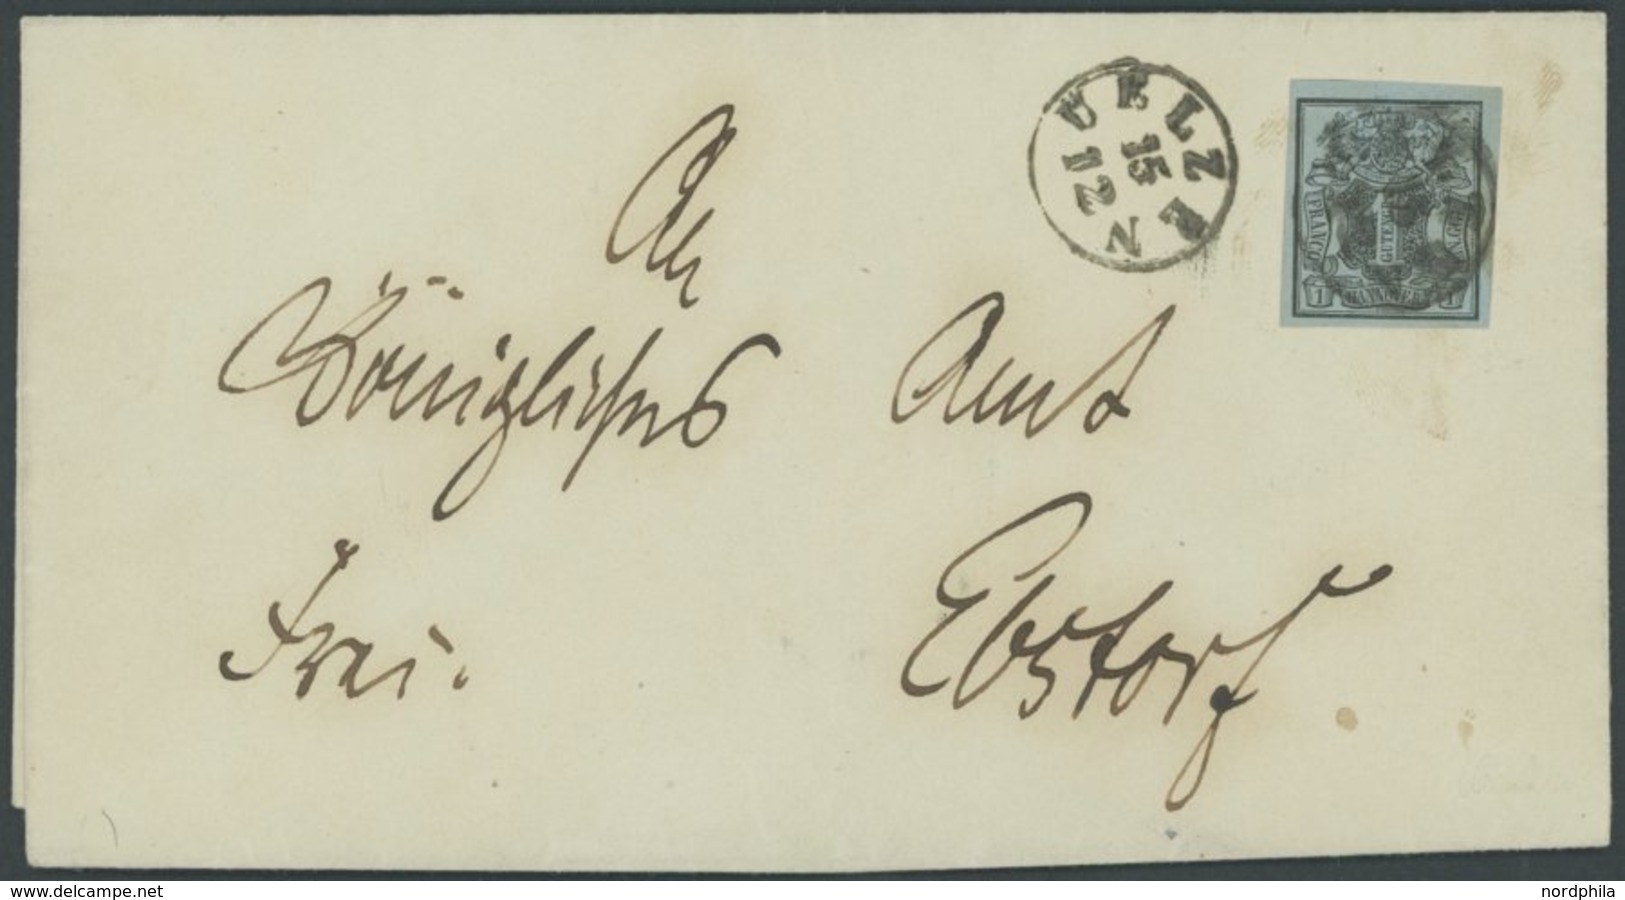 UELZEN
15
21
FRANCO
1 GUTENGR
HANNOVER
1 1
An
Königliches Amt
Frei. Ebstorf
www.delcampe.net nordphila